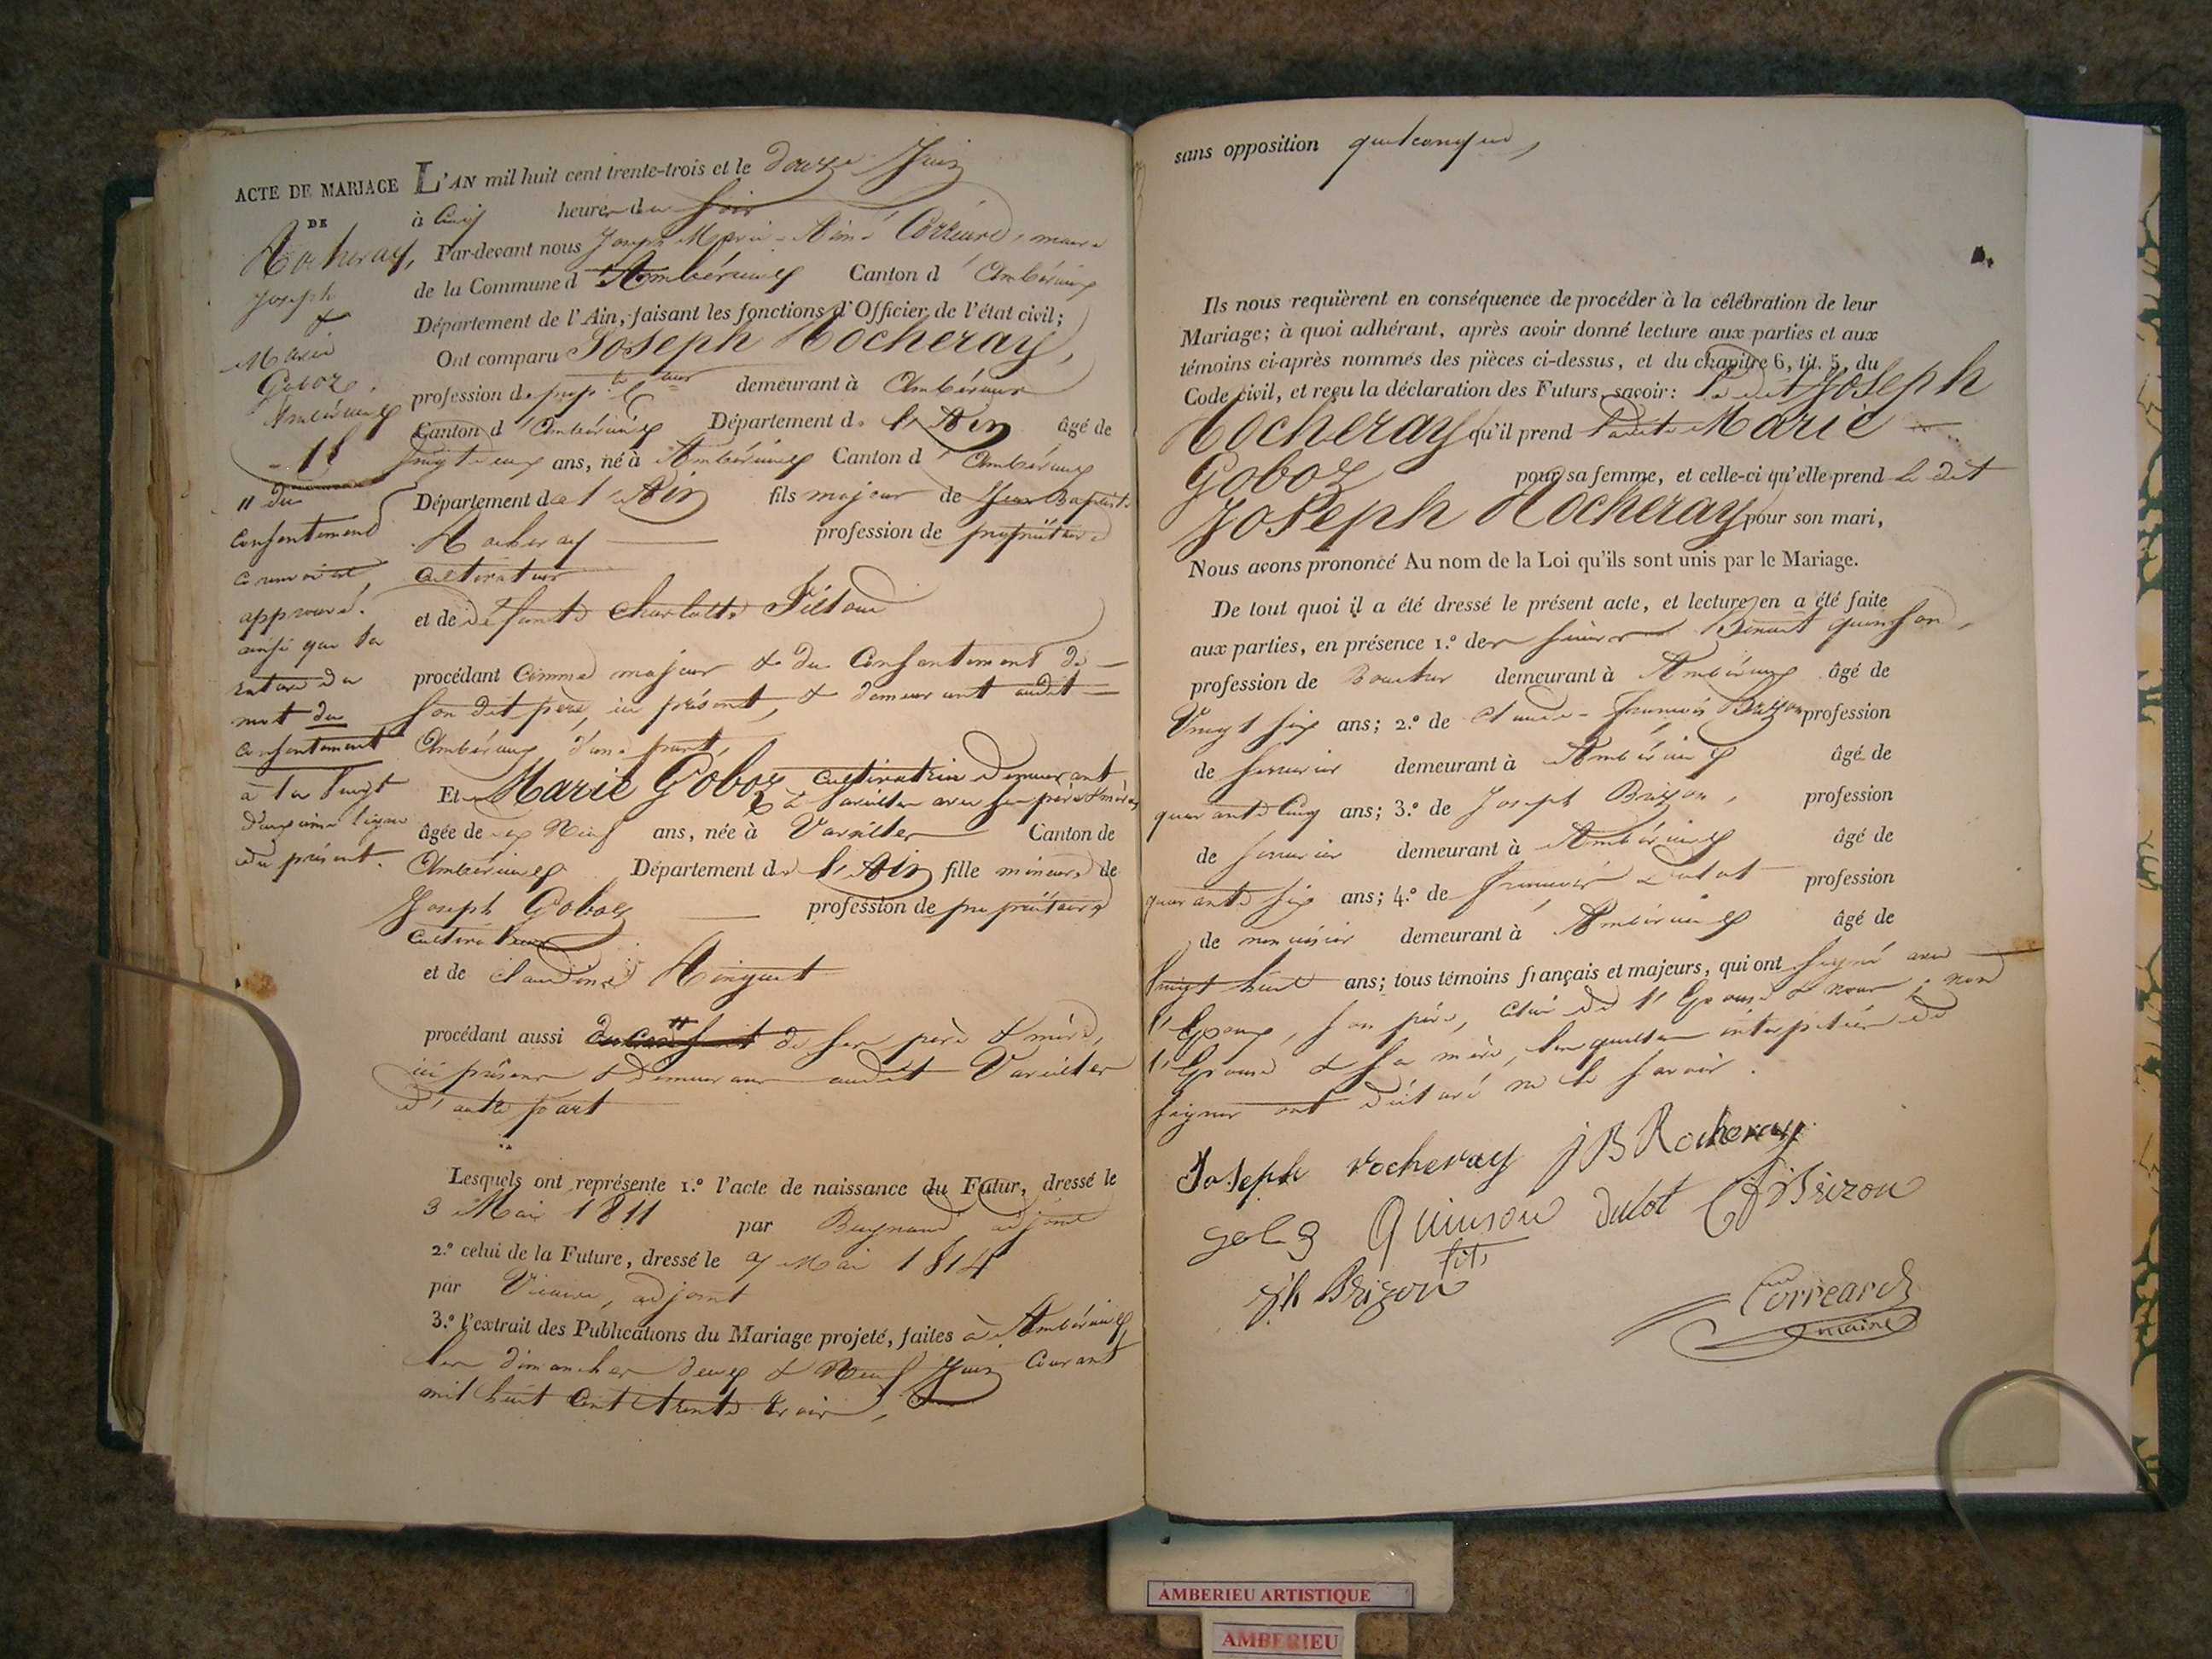 ACTE DE MARIAGE
DE
Rocheray,
Joseph
&
Marie
Goboz.
Ambérieux
18
" du
consentement
approuvé.
ainsi que la
rature du
mot du
consentement
à la vingt
deuxième ligne
du présent.
L'AN mil huit cent trente-trois et le douze Juin
à Cinq heures du soir
Par-devant nous Joseph Marie-Aimé Corréard, maire
de la Commune d'Ambérieux Canton d'Ambérieux
Département de l'Ain, faisant les fonctions d'Officier de l'état civil;
Ont comparu Joseph Rocheray,
profession de prop.re c.teur demeurant à Ambérieux
Canton d'Ambérieux Département de l'Ain âgé de
vingt deux ans, né à Ambérieux Canton d'Ambérieux
Département de l'Ain fils majeur de Jean Baptiste
Rocheray profession de propriétaire
Cultivateur
et de défunte Charlotte
procédant Comme majeur & du Consentement de
son dit père, ici présent, & demeurant audit
Ambérieux d'une part,
Et Marie Goboz Cultivatrice demeurant
à Vareilles avec ses père & mère
âgée de dix Neuf ans, née à Vareilles Canton de
Ambérieux Département de l'Ain fille mineure de
Joseph Goboz profession de propriétaire
Cultivateur
et de Claudine
procédant aussi " de ses père & mère,
ici présens & demeurans audit Vareilles
d'autre part
Lesquels ont représenté 1.º l'acte de naissance du Futur, dressé le
3 Mai 1811 par adjoint
2.º celui de la Future, dressé le 7 Mai 1814
par adjoint
3.º l'extrait des Publications du Mariage projeté, faites à Ambérieux
les dimanches deux & Neuf Juin Courant
mil huit Cent trente trois,
sans opposition quelconque,
Ils nous requièrent en conséquence de procéder à la célébration de leur
Mariage; à quoi adhérant, après avoir donné lecture aux parties et aux
témoins ci-après nommés des pièces ci-dessus, et du chapitre 6, tit. 5, du
Code civil, et reçu la déclaration des Futurs, savoir: Ledit Joseph
Rocheray qu'il prend Ladite Marie
Goboz pour sa femme, et celle-ci qu'elle prend le dit
Joseph Rocheray pour son mari,
Nous avons prononcé Au nom de la Loi qu'ils sont unis par le Mariage.
De tout quoi il a été dressé le présent acte, et lecture en a été faite
aux parties, en présence 1.º des sieurs Benoit Quinson,
profession de Boucher demeurant à Ambérieux âgé de
Vingt six ans; 2.º de Claude-François Brizon profession
de serrurier demeurant à Ambérieux âgé de
quarante Cinq ans; 3.º de Joseph Brizon, profession
de serrurier demeurant à Ambérieux âgé de
quarante six ans; 4.º de François Dutot profession
de menuisier demeurant à Ambérieux âgé de
Vingt huit ans; tous témoins français et majeurs, qui ont signé avec
l'Epoux, son père, celui de l'Epouse & nous; non
l'Epouse & sa mère, lesquelles interpellées de
signer ont déclaré ne le savoir.
Joseph rocheray JB Rocheray
Quinson Dutot CF Brizon
fils
Jh Brizon
Corréard
maire
AMBERIEU ARTISTIQUE
AMBERIEU